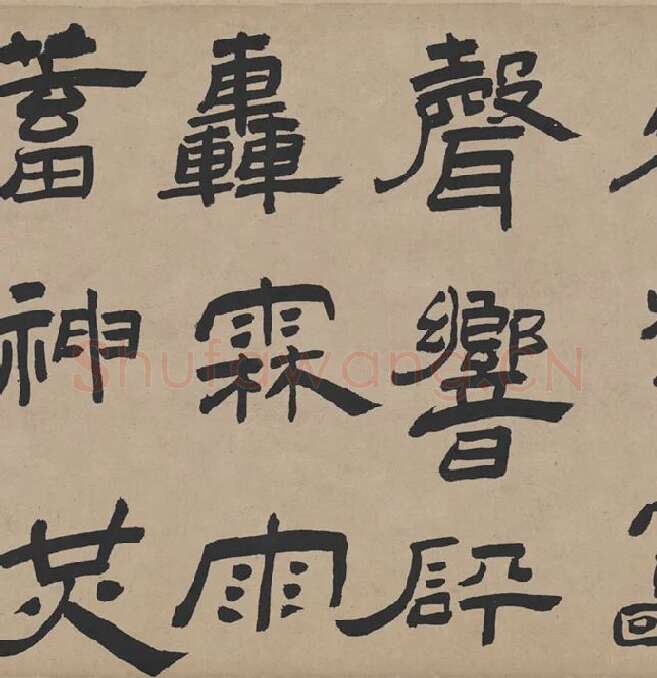 聲響砰
轟霖雨
蓄神炗
Shufawang.CN